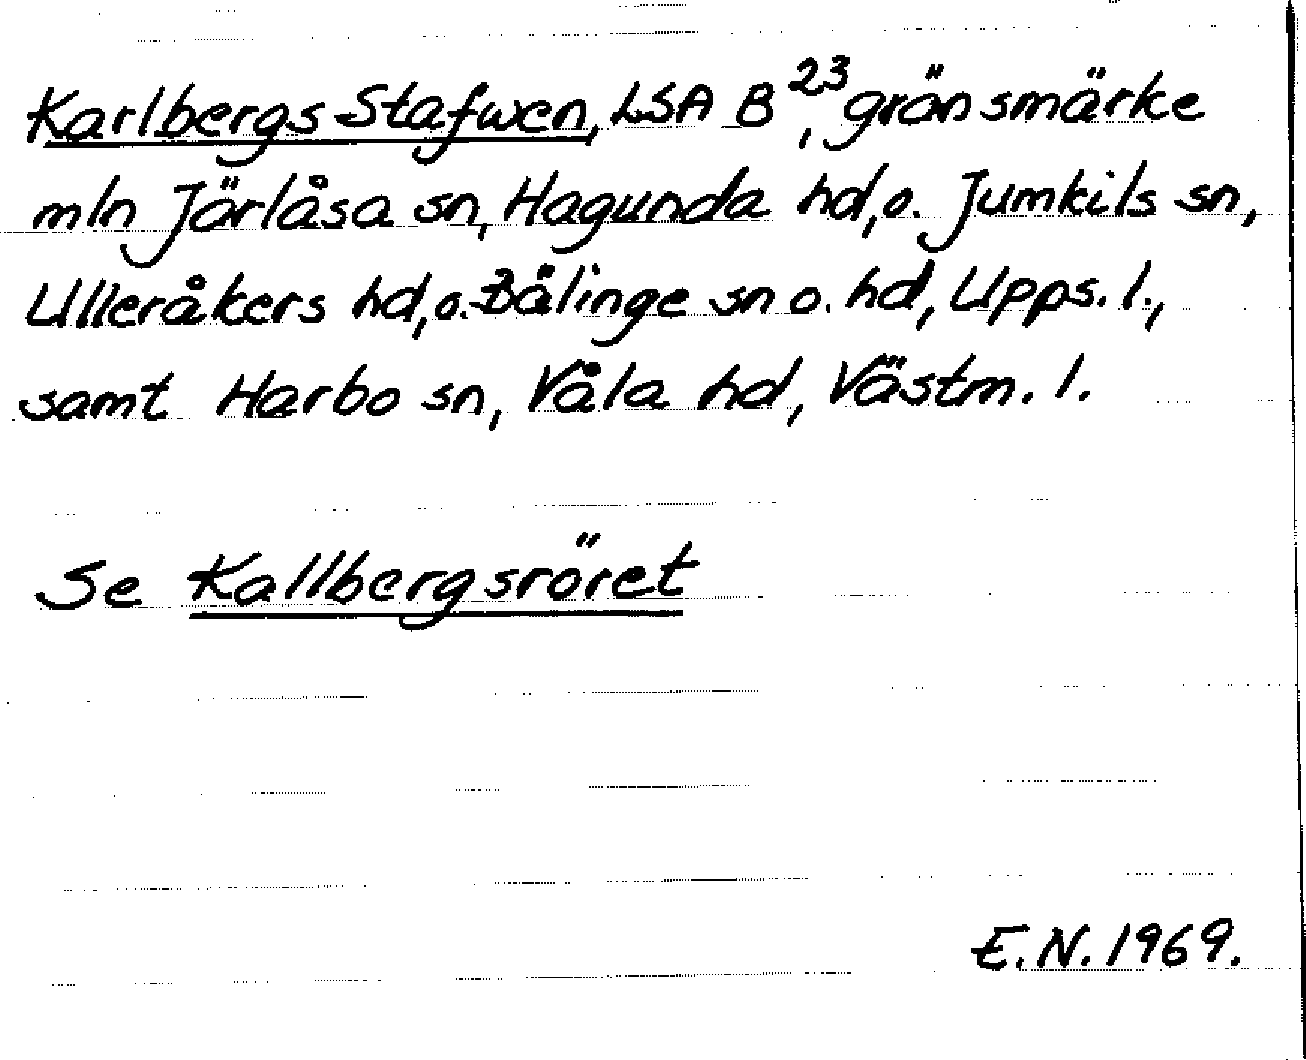 Karlbergs Stafwen, LSA B²³, gränsmärke
mln Järlåsa sn, Hagunda hd, o. Jumkils sn,
Ulleråkers hd, o. Bälinge sn o. hd, Upps. l.,
samt Harbo sn, Våla hd, Västm. l.
Se Kallbergsröret
E.N. 1969.